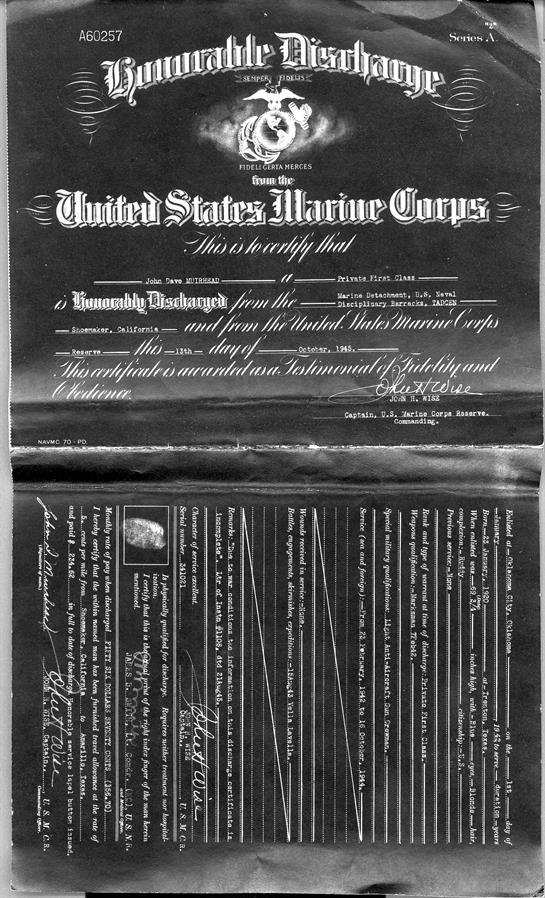 A60257
"Z"
Series A.
Honorable Discharge
SEMPER FIDELIS
FIDELI CERTA MERCES
from the
United States Marine Corps
This is to certify that
John Dave MUIRHEAD a Private First Class
is Honorably Discharged from the Marine Detachment, U.S. Naval
Disciplinary Barracks, TADCEN
Shoemaker, California and from the United States Marine Corps
Reserve this 13th day of October, 1945.
This certificate is awarded as a Testimonial of Fidelity and
Obedience.
John H Wise
JOHN H. WISE
Captain, U.S. Marine Corps Reserve.
Commanding.
NAVMC 70-PD
Enlisted at Oklahoma City, Oklahoma on the 1st day of
January, 1942 to serve duration years
Born 22 January, 1920 at Trenton, Texas.
When enlisted was 69 3/4 inches high, with Blue eyes, Blonde hair,
complexion Ruddy citizenship U.S.
Previous service: None
Rank and type of warrant at time of discharge: Private First Class.
Weapons qualification: Marksman
Special military qualifications: Light Anti-Aircraft Gun Crewman.
Service (sea and foreign): From 22 February, 1942 to 16 October, 1944.
Wounds received in service: None.
Battles, engagements, skirmishes, expeditions: 15Aug43 Vella Lavella.
Remarks: "Due to war conditions the information on this discharge certificate is
incomplete". Ltr of Instn #1108, dtd 21Aug45.
Character of service excellent.
Serial number 341021
John H Wise
JOHN H. WISE
Captain, U. S. M. C. R.
Is physically qualified for discharge. Requires neither treatment nor hospitalization.
I certify that this is the actual print of the right index finger of the man herein
mentioned.
JAMES Lt. Comdr. (MC) U. S. N. R.
Monthly rate of pay when discharged FIFTY SIX DOLLARS SEVENTY CENTS ($56.70)
I hereby certify that the within named man has been furnished travel allowance at the rate of
5 cents per mile from Shoemaker, California to Amarillo, Texas.
and paid $ 224.62 in full to date of discharge. Honorable service lapel button issued.
John D. Muirhead
John H Wise
JOHN H. WISE, Captain, U. S. M. C. R.
(Signature of man)
Commanding Officer